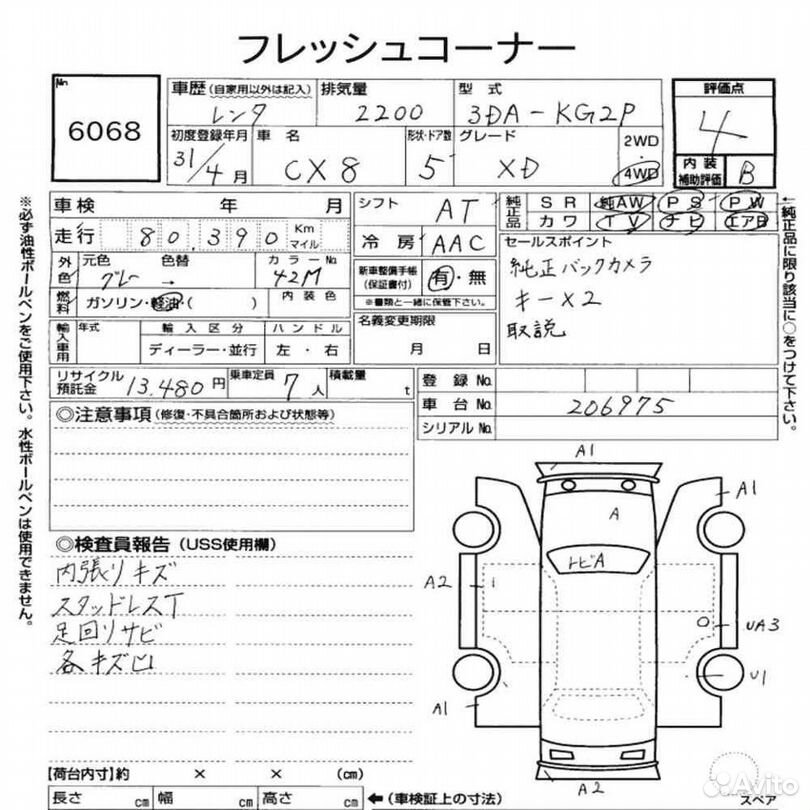 フレッシュコーナー
No
6068
車歴 (自家用以外は記入) 排気量 型式
レンタ 2200 3DA-KG2P
初度登録年月 車名 形状・ドア数 グレード 2WD
31/4月 CX8 5 XD 4WD
評価点
4
内装補助評価 B
車検 年 月 シフト AT
走行 80,390 Km マイル 冷房 AAC
純正品 SR 純AW PS PW
カワ TV ナビ エアB
外色 元色 色替 カラーNo
グレー → 42M
燃料 ガソリン・軽油・( ) 内装色
新車整備手帳 (保証書付) 有・無
※書類と一緒に保管下さい。
セールスポイント
純正バックカメラ
キー×2
取説
輸入車用 年式 輸入区分 ハンドル
ディーラー・並行 左・右
名義変更期限
月 日
リサイクル預託金 13,480円 乗車定員 7人 積載量 t
登録No.
車台No. 206975
シリアルNo.
◎注意事項 (修復・不具合箇所および状態等)
◎検査員報告 (USS使用欄)
内張りキズ
スタッドレスT
足回りサビ
各キズ凹
A1
A1
A
トビA
A2
UA3
U1
A1
A2
スペア
【荷台内寸】約 × × (cm)
長さ cm 幅 cm 高さ cm ←(車検証上の寸法)
※必ず油性ボールペンをご使用下さい。水性ボールペンは使用できません。
←純正品に限り該当に○をつけて下さい。
Avito